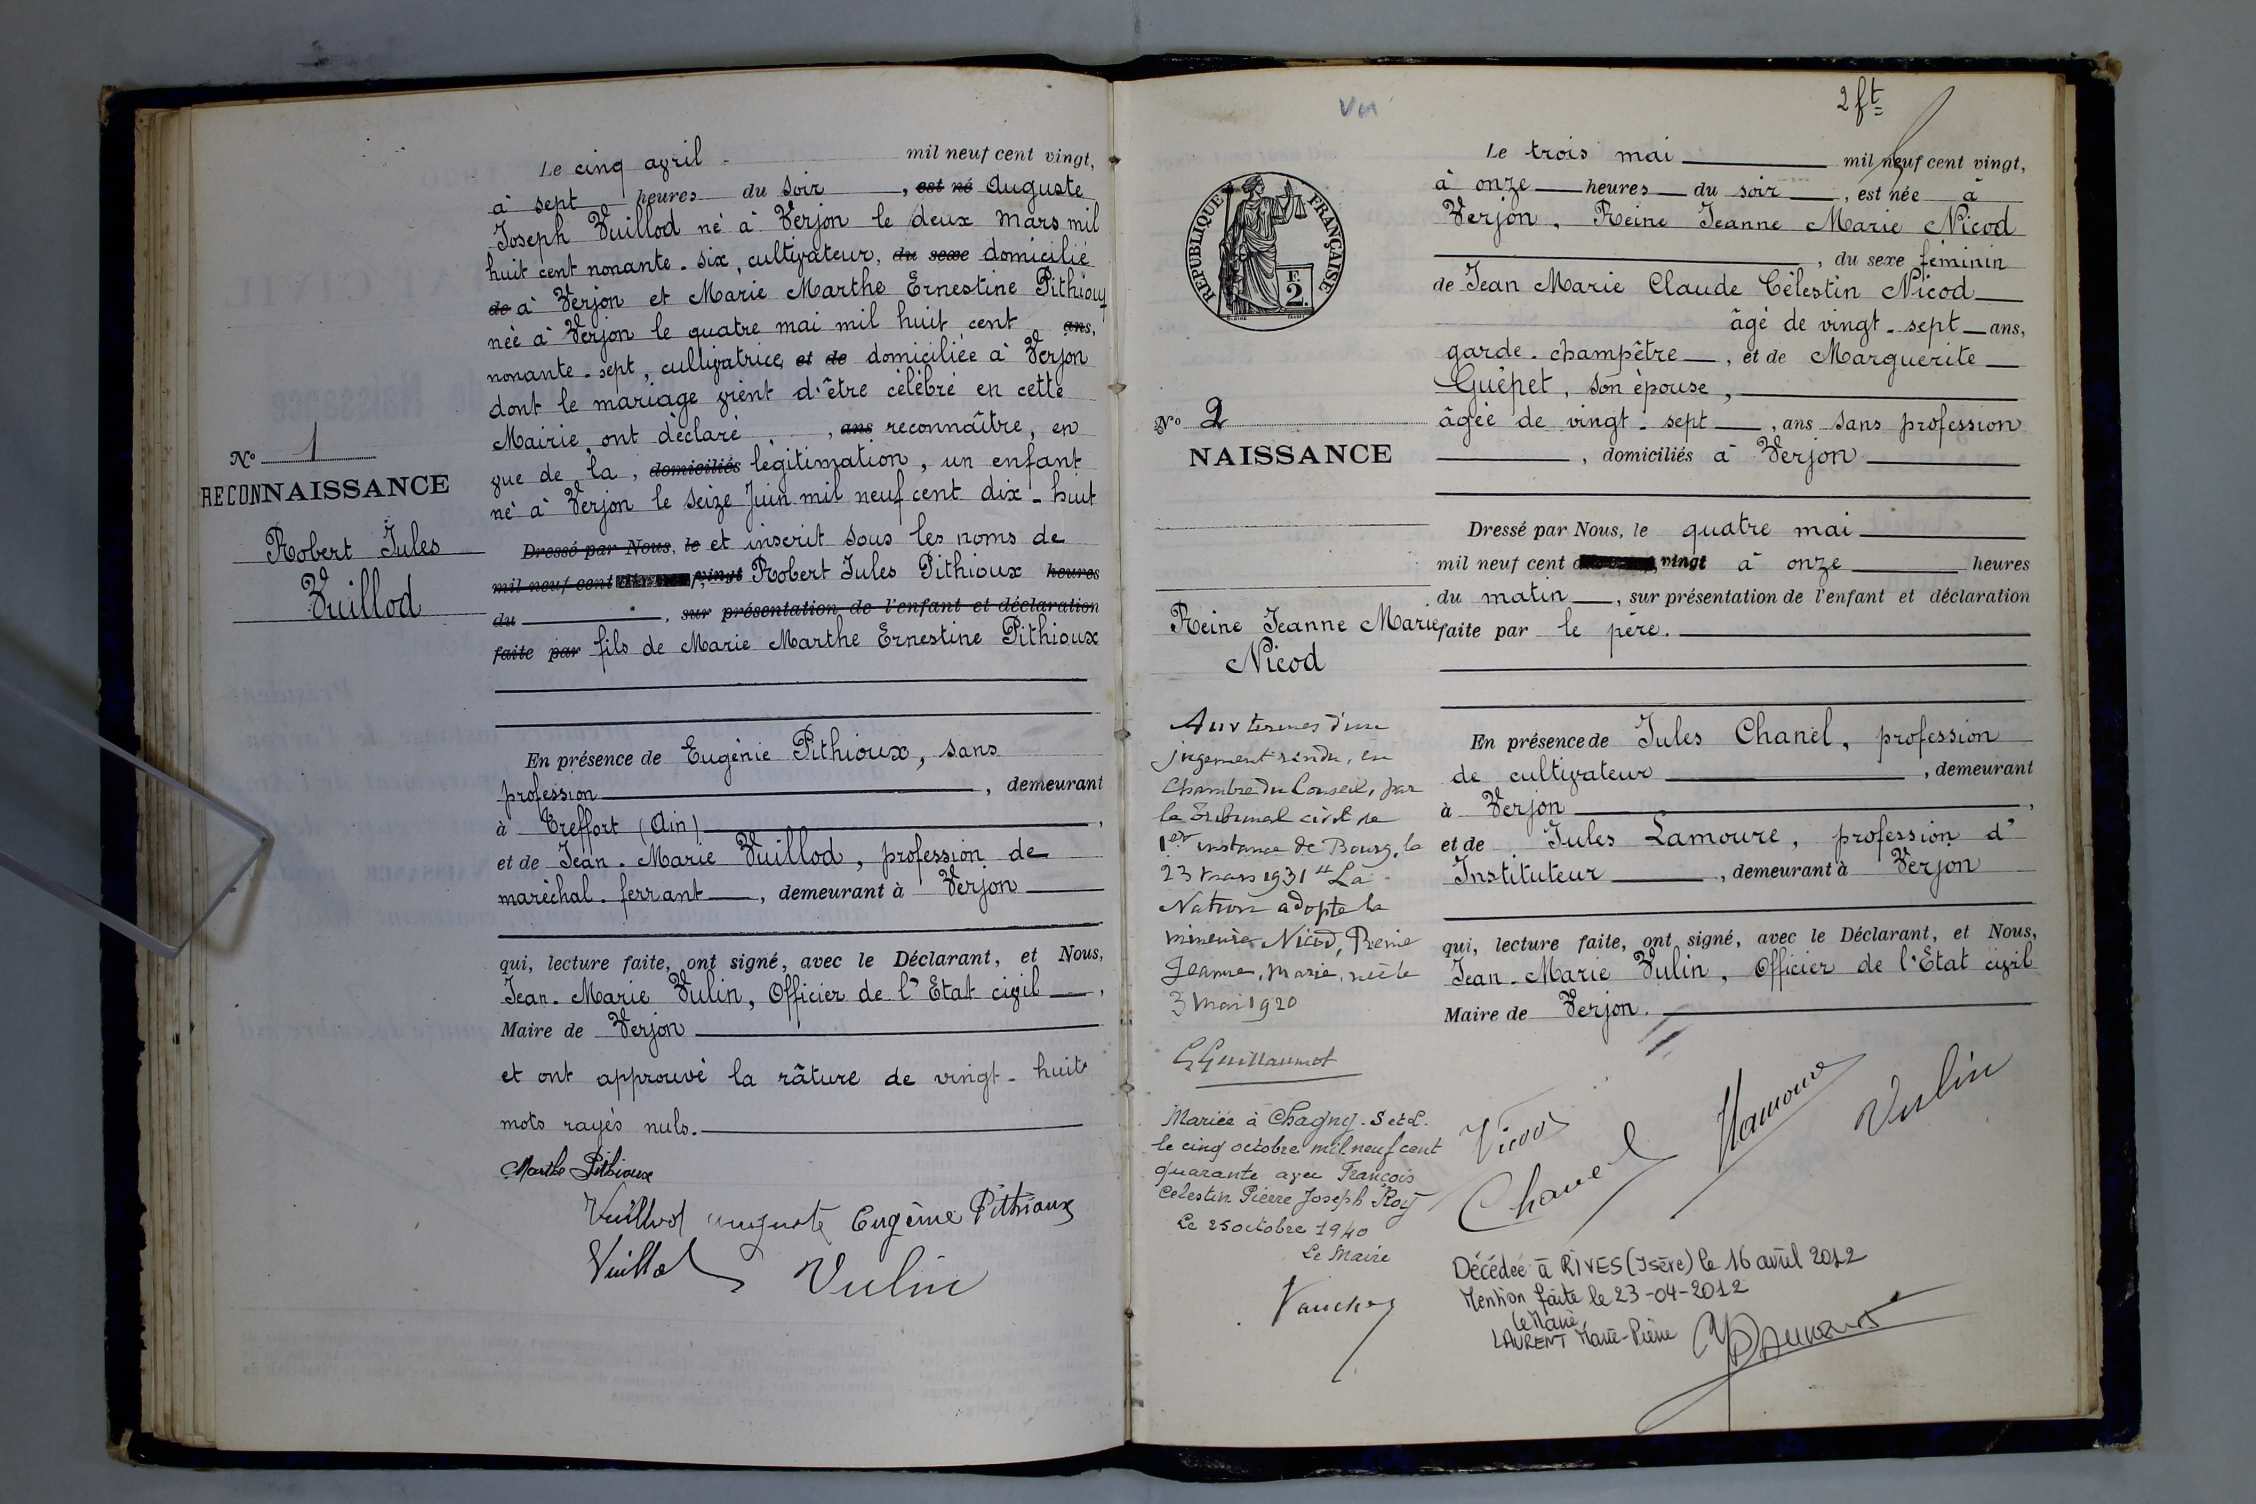 Le cinq avril - mil neuf cent vingt,
à sept heures du soir, est né Auguste
Joseph Vuillod né à Verjon le deux mars mil
huit cent nonante-six, cultivateur, du sexe domicilié
de à Verjon et Marie Marthe Ernestine Pithioux
née à Verjon le quatre mai mil huit cent ans,
nonante-sept, cultivatrice, et de domiciliée à Verjon
dont le mariage vient d'être célébré en cette
Mairie, ont déclaré, ans reconnaître, en
vue de la, domiciliés légitimation, un enfant
né à Verjon le seize Juin mil neuf cent dix-huit
Dressé par Nous, le et inscrit sous les noms de
mil neuf cent vingt Robert Jules Pithioux heures
du, sur présentation de l'enfant et déclaration
faite par fils de Marie Marthe Ernestine Pithioux
En présence de Eugénie Pithioux, sans
profession, demeurant
à Treffort (Ain),
et de Jean-Marie Vuillod, profession de
maréchal-ferrant, demeurant à Verjon
qui, lecture faite, ont signé, avec le Déclarant, et Nous,
Jean-Marie Vulin, Officier de l'Etat civil,
Maire de Verjon
et ont approuvé la râture de vingt-huit
mots rayés nuls.
Marthe Pithioux
Vuillod Auguste Eugénie Pithioux
Vuillod Vulin
N° 1
RECONNAISSANCE
Robert Jules
Vuillod
2 ft
Vu
REPUBLIQUE FRANÇAISE
F.
2.
N° 2
NAISSANCE
Reine Jeanne Marie
Nicod
Aux termes d'un
jugement rendu, en
Chambre du Conseil, par
le Tribunal civil de
1ere instance de Bourg, le
23 mars 1931 "La
Nation adopte la
mineure Nicod, Reine
Jeanne, Marie, née le
3 Mai 1920
G Guillaumot
Mariée à Chagny. S et L.
le cinq octobre mil neuf cent
quarante avec François
Celestin Pierre Joseph Roy
Le 25 octobre 1940
Le Maire
Le trois mai mil neuf cent vingt,
à onze heures du soir, est née à
Verjon, Reine Jeanne Marie Nicod
, du sexe féminin
de Jean Marie Claude Célestin Nicod
âgé de vingt-sept ans,
garde-champêtre, et de Marguerite
Guépet, son épouse,
âgée de vingt-sept, ans sans profession
, domiciliés à Verjon
Dressé par Nous, le quatre mai
mil neuf cent vingt à onze heures
du matin, sur présentation de l'enfant et déclaration
faite par le père.
En présence de Jules Chanel, profession
de cultivateur, demeurant
à Verjon,
et de Jules Lamoure, profession d'
Instituteur, demeurant à Verjon
qui, lecture faite, ont signé, avec le Déclarant, et Nous,
Jean-Marie Vulin, Officier de l'Etat civil
Maire de Verjon.
Nicod Chanel Lamoure Vulin
Décédée à RIVES (Isère) le 16 avril 2012
Mention faite le 23-04-2012
Le Maire,
LAURENT Marie-Pierre